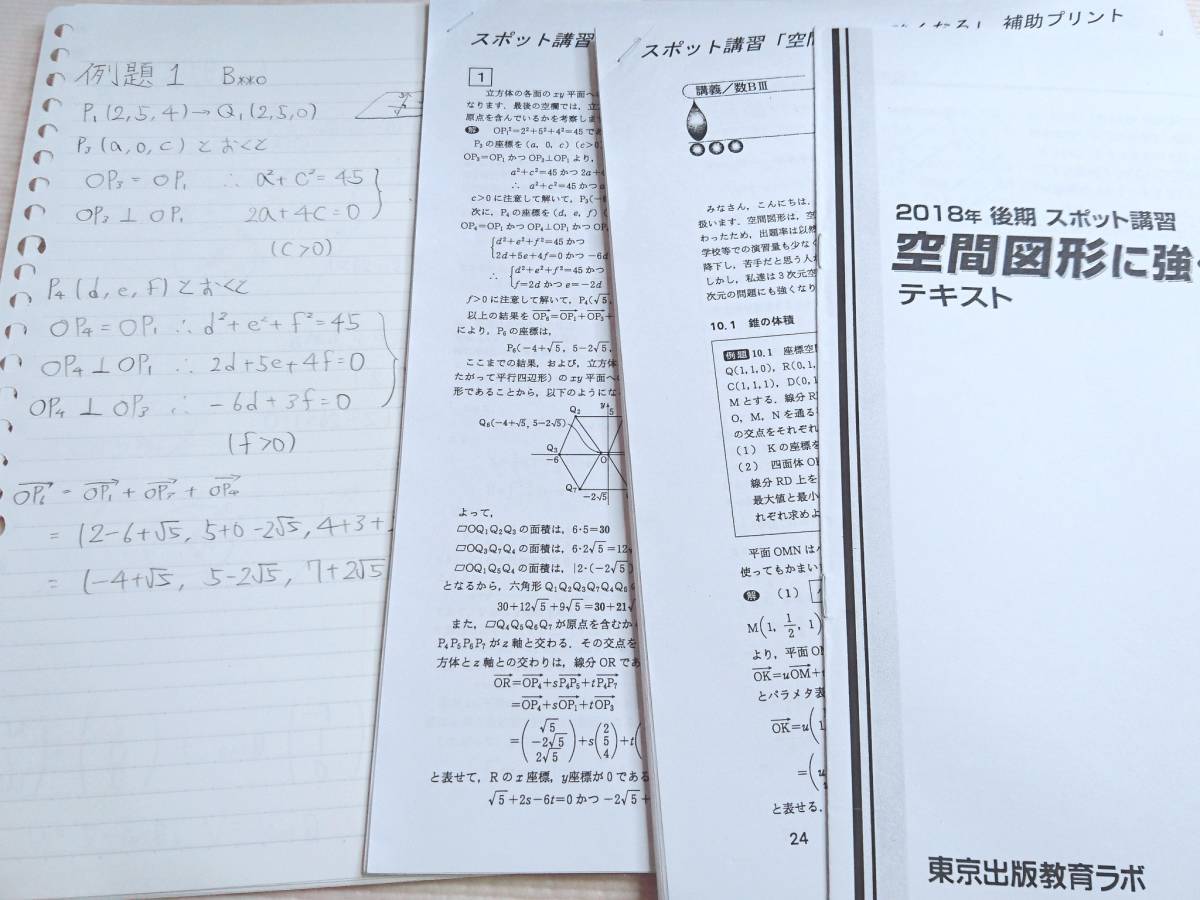 例題1 B**○
P₁(2,5,4)→Q₁(2,5,0)
P₃(a,0,c)とおくと
OP₃=OP₁ ∴a²+c²=45
OP₃⊥OP₁ 2a+4c=0
(c>0)
P₄(d,e,f)とおくと
OP₄=OP₁ ∴d²+e²+f²=45
OP₄⊥OP₁ ∴2d+5e+4f=0
OP₄⊥OP₃ ∴-6d+3f=0
(f>0)
=(2-6+√5, 5+0-2√5, 4+3+
=(-4+√5, 5-2√5, 7+2√5
スポット講習
1
立方体の各面のxy平面へ
なります.最後の空欄では,立
原点を含んでいるかを考察しま
解 OP₁²=2²+5²+4²=45であ
P₃の座標を(a, 0, c)(c>0
OP₃=OP₁かつOP₃⊥OP₁より,
a²+c²=45かつ2a+4
∴ a²+c²=45かつa
c>0に注意して解いて,P₃(-
次に,P₄の座標を(d, e, f)(
OP₄=OP₁かつOP₄⊥OP₁かつOP
d²+e²+f²=45かつ
2d+5e+4f=0かつ-6d
∴ d²+e²+f²=45かつ
f=2dかつe=-2d
f>0に注意して解いて,P₄(√5,
以上の結果をOP₆=OP₁+OP₃+
により,P₆の座標は,
P₆(-4+√5, 5-2√5,
ここまでの結果,および,立方体
たがって平行四辺形)のxy平面への
形であることから,以下のようにな
Q₂ y 5
Q₆(-4+√5, 5-2√5)
Q₃
-6 O
Q₇ -2√5
よって,
▱OQ₁Q₂Q₃の面積は,6·5=30
▱OQ₃Q₇Q₄の面積は,6·2√5=12
▱OQ₁Q₅Q₄の面積は,|2·(-2√5)
となるから,六角形Q₁Q₂Q₃Q₇Q₄Q₅の
30+12√5+9√5=30+21√
また,▱Q₄Q₅Q₆Q₇が原点を含むか
P₄P₅P₆P₇がz軸と交わる.その交点を
方体とz軸との交わりは,線分ORであ
OR=OP₄+sP₄P₅+tP₄P₇
=OP₄+sOP₁+tOP₃
=(√5 -2√5 2√5)+s(2 5 4)+t(
と表せて,Rのx座標,y座標が0である
√5+2s-6t=0かつ-2√5+
スポット講習「空間
講義/数BⅢ
みなさん,こんにちは.
扱います.空間図形は,空
わったため,出題率は以然
学校等での演習量も少なく
降下し,苦手だと思う人が
しかし,私達は3次元空
次元の問題にも強くなり
10.1 錐の体積
例題10.1 座標空間
Q(1,1,0), R(0,1,
C(1,1,1), D(0,1
Mとする.線分R
O, M, Nを通る
の交点をそれぞれ
(1) Kの座標を
(2) 四面体O
線分RD上を
最大値と最小
れぞれ求めよ
平面OMNは
使ってもかまい
解 (1)
M(1, 1/2, 1)
より,平面O
OK=uOM+
とパラメタ表
OK=u(1
=(u
と表せる.
24
補助プリント
2018年 後期 スポット講習
空間図形に強
テキスト
東京出版教育ラボ